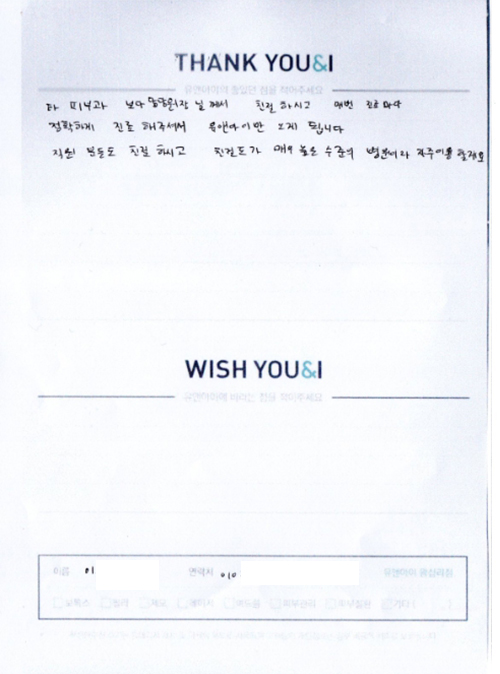 THANK YOU&I
유앤아이의 좋았던 점을 적어주세요
타 피부과 보다 원장 님께서 친절 하시고 매번 진료 마다
정확하게 진료 해주셔서 유앤아이만 오게 됩니다
직원 분들도 친절 하시고 친절도가 매우 높은 수준의 병원이라 자주이용 할게요
WISH YOU&I
유앤아이에 바라는 점을 적어주세요
이름 이
연락처 010
보톡스 필러 제모 레이저 여드름 피부관리 피부질환 기타 ( )